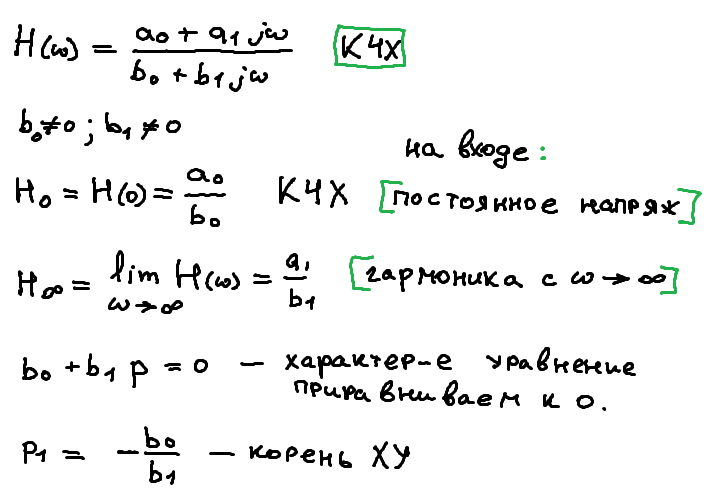 H(ω) = (a₀ + a₁jω) / (b₀ + b₁jω) КЧХ
b₀≠0 ; b₁≠0
на входе:
H₀ = H(0) = a₀/b₀ КЧХ [постоянное напряж]
H∞ = lim ω→∞ H(ω) = a₁/b₁ [гармоника с ω→∞]
b₀ + b₁ p = 0 — характер-е уравнение
приравниваем к 0.
P₁ = -b₀/b₁ — корень ХУ